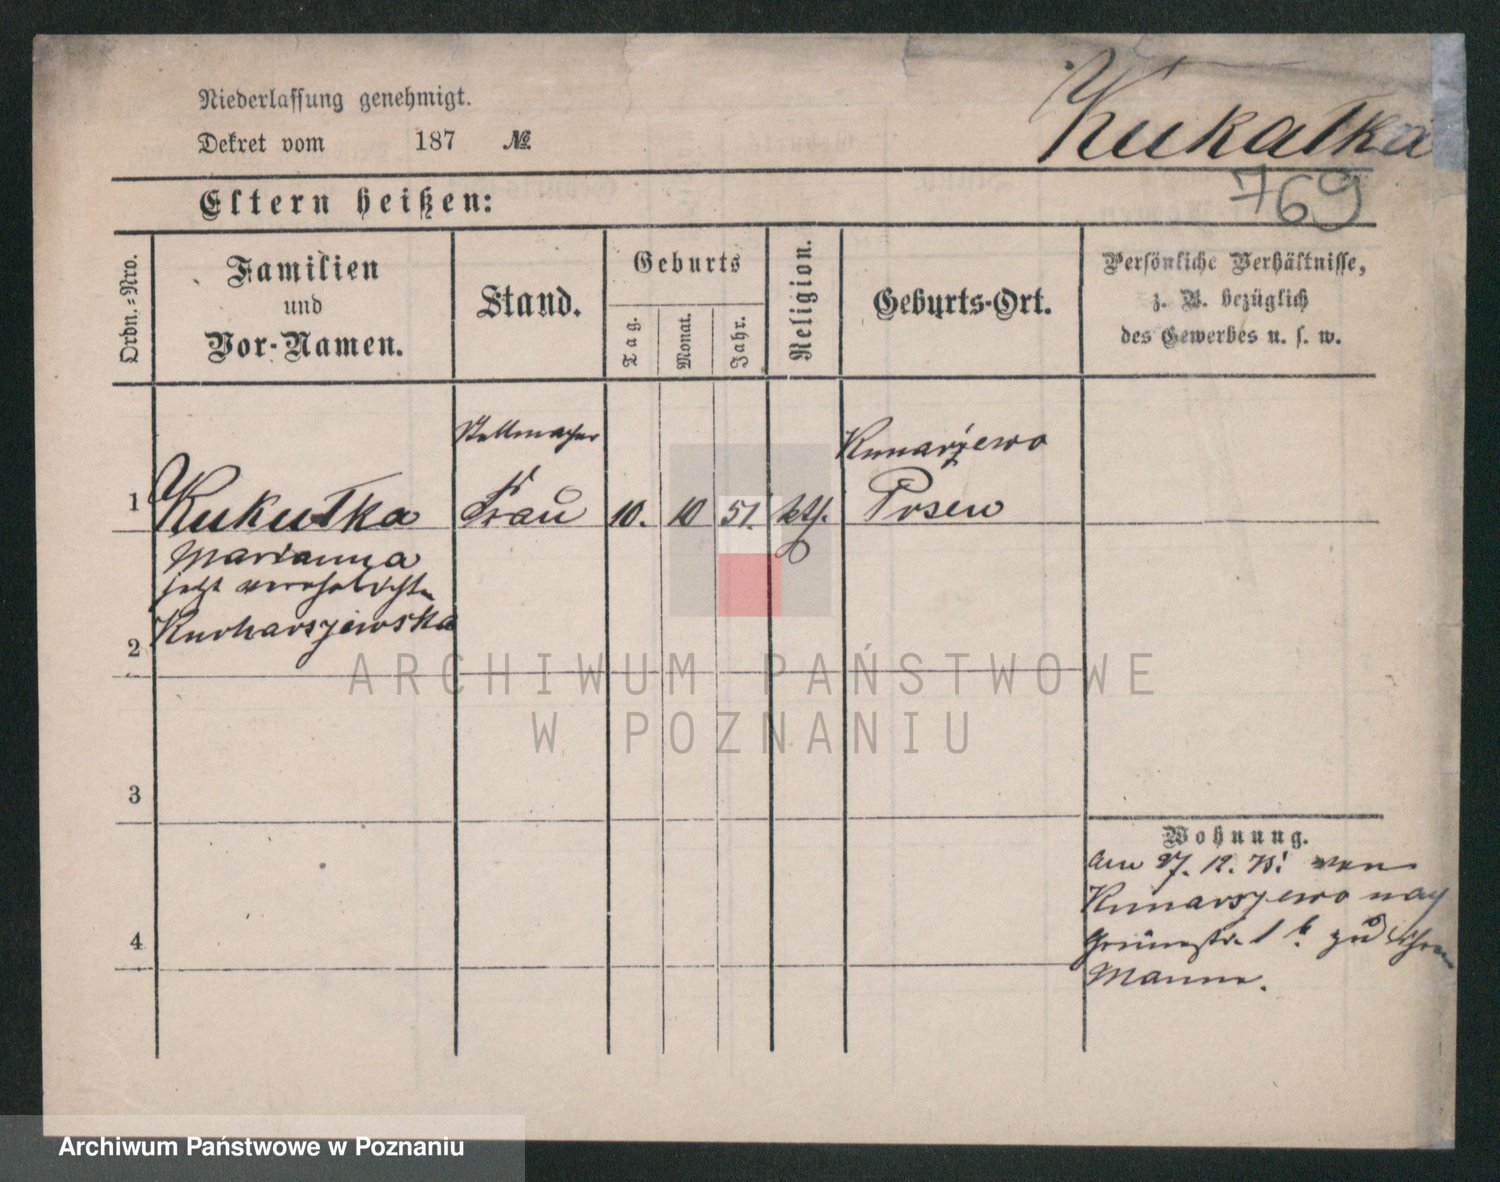 Niederlassung genehmigt.
Dekret vom 187 №
Kukatka
769
Eltern heißen:
Ordn.-Nro.
Familien
und
Vor-Namen.
Stand.
Geburts
Tag.
Monat.
Jahr.
Religion.
Geburts-Ort.
Persönliche Verhältnisse,
z. B. bezüglich
des Gewerbes u. s. w.
1
Kukułka
Stellmacher
Frau
10. 10 51. kth.
Kunarzewo
Posen
Marianna
jetzt verehelichte
2
3
4
Wohnung.
Am 27. 12. 75. von
Kunarszewo nach
Grünestr. 1 b. zu ihrem
Manne.
ARCHIWUM PAŃSTWOWE
W POZNANIU
Archiwum Państwowe w Poznaniu